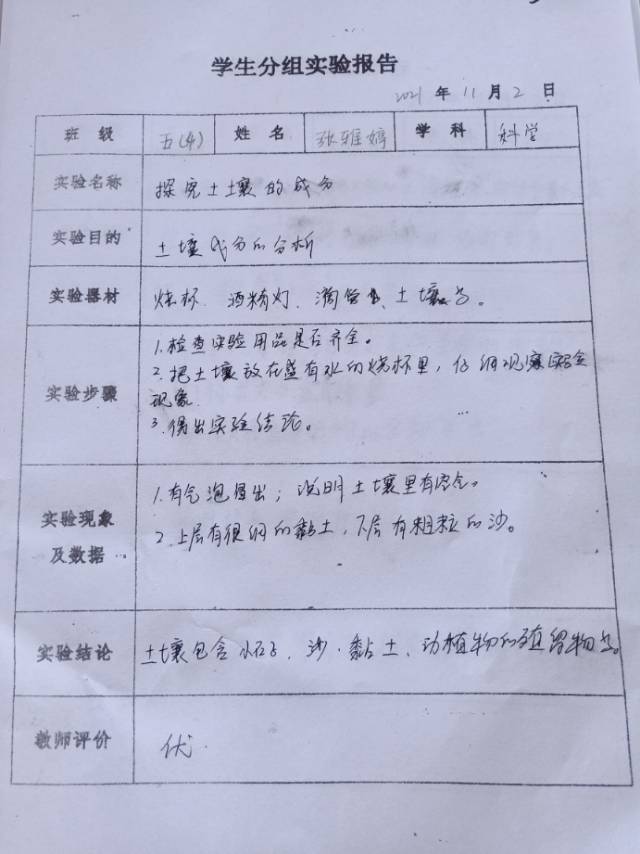 学生分组实验报告
2021 年 11 月 2 日
班 级 五(4) 姓 名 张雅婷 学 科 科学
实验名称 探究土壤的成分
实验目的 土壤成分的分析
实验器材 烧杯、酒精灯、滴管、土壤等。
实验步骤
1.检查实验用品是否齐全。
2.把土壤放在盛有水的烧杯里,仔细观察实验
现象
3.得出实验结论。
实验现象
及数据
1.有气泡冒出;说明土壤里有空气。
2.上层有很细的黏土,下层有粗粒的沙。
实验结论 土壤包含小石子、沙、黏土、动植物的残留物等。
教师评价 优